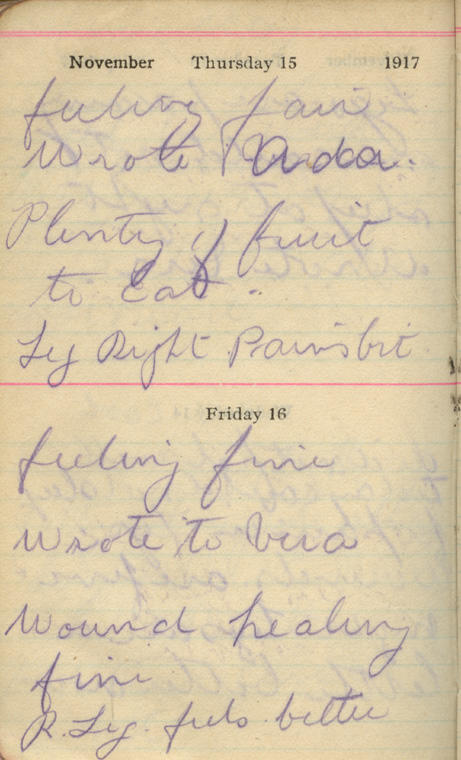 November Thursday 15 1917
feeling fair
Wrote Ada.
Plenty of fruit
to Eat.
Leg Right Pains bit
Friday 16
feeling fine
Wrote to Vera
Wound healing
fine
R. Leg. feels better